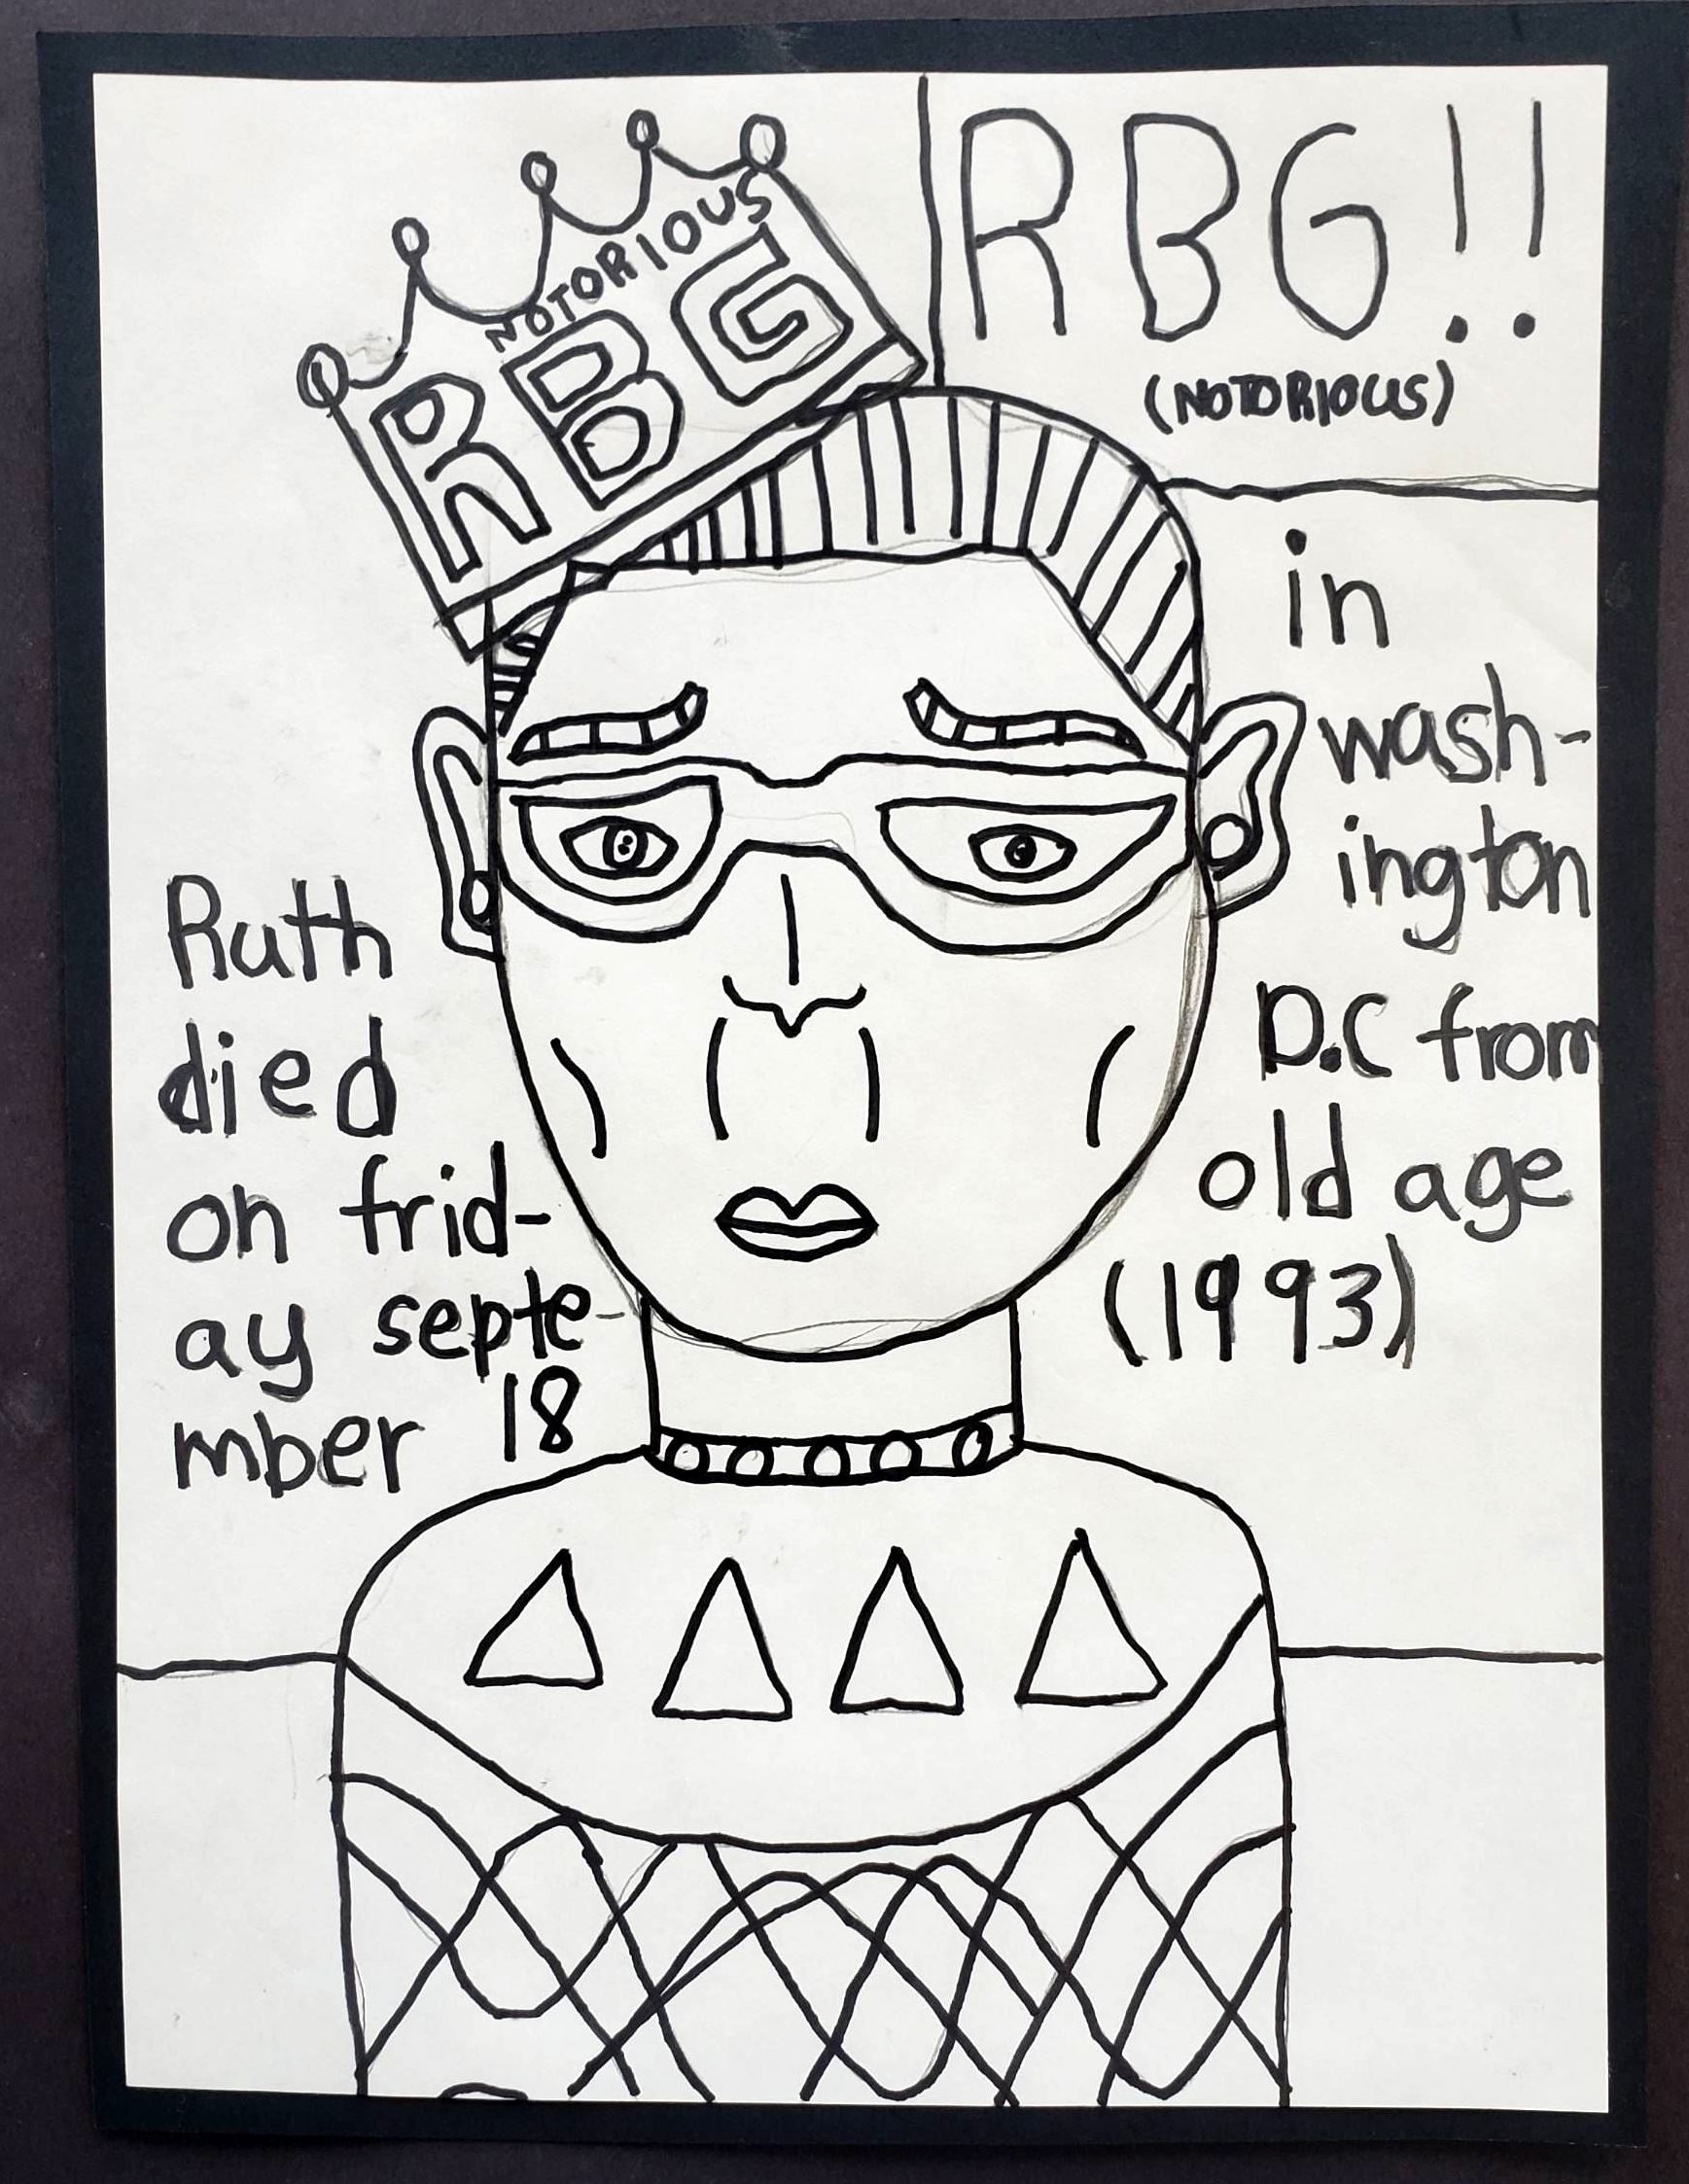 NOTORIOUS
RBG
RBG!!
(NOTORIOUS)
Ruth
died
on frid-
ay septe-
mber 18
in
wash-
ington
D.C from
old age
(1993)